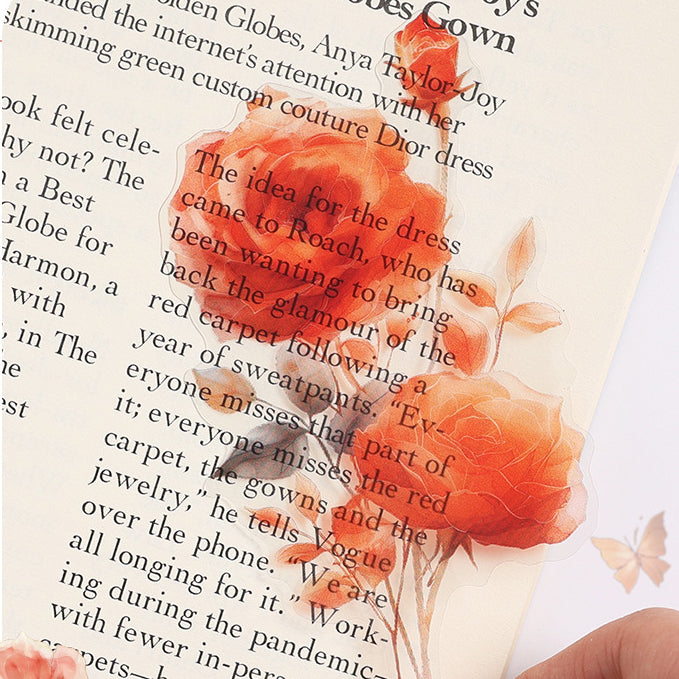 oy's
obes Gown
olden Globes, Anya Taylor-Joy
nded the internet's attention with her
skimming green custom couture Dior dress
ook felt cele-
hy not? The
a Best
Globe for
Harmon, a
with
, in The
he
est
The idea for the dress
came to Roach, who has
been wanting to bring
back the glamour of the
red carpet following a
year of sweatpants. “Ev-
eryone misses that part of
it; everyone misses the red
carpet, the gowns and the
jewelry,” he tells Vogue
over the phone. “We are
all longing for it.” Work-
ing during the pandemic—
with fewer in-pers
carpets—h